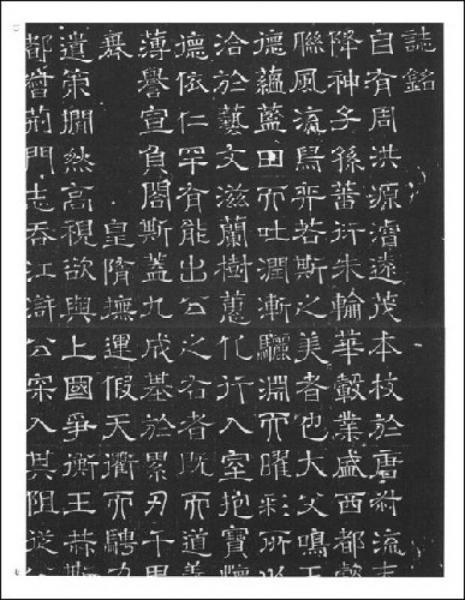 誌銘
自有周洪源濬遠茂本枝於唐流
降神子孫蕃衍朱輪華轂業盛西都懿
聯風流舄弈若斯之美者也大父鳴玉
德蘊藍田而吐潤漸驪淵而曜彩所以
洽於藝文滋蘭樹蕙化行入室抱寶懷
德依仁罕有能出公之右者既而道
薄譽宣負閣斯蓋九成基於累千里
皇隋撫運假天衢而騁
遺策撊然高視欲與上國爭衡王赫斯
都督荊門志吞江滸公深入其阻從